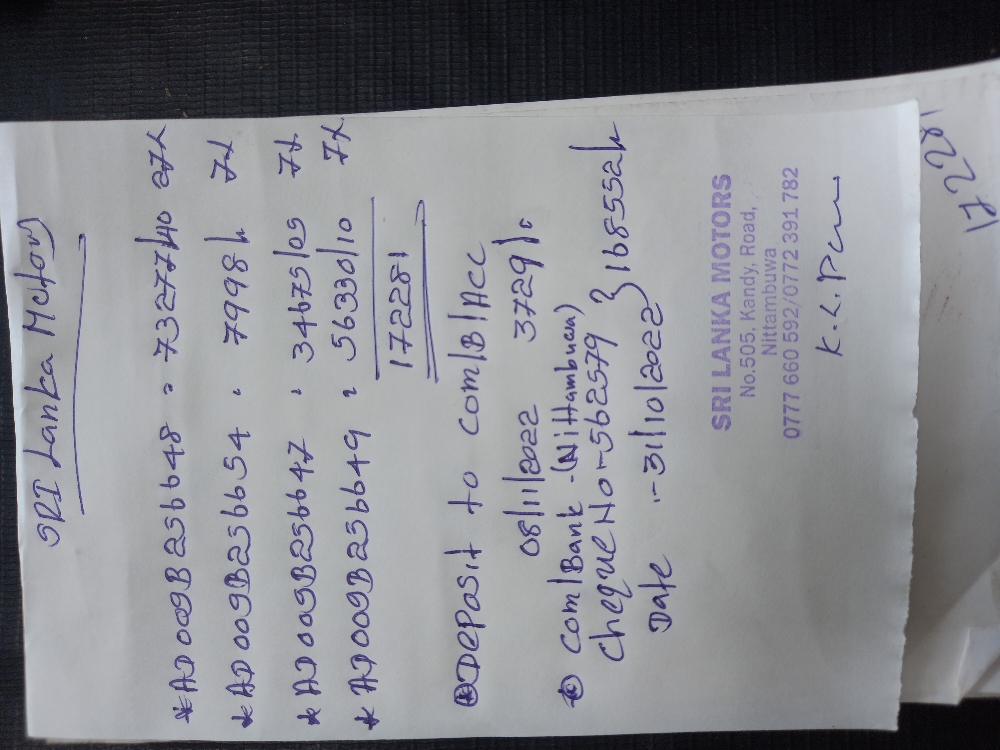 SRI Lanka Motors
*AD009B256648 - 73277/40 27x
*AD009B256654 - 7998/- 7x
*AD009B256647 - 34675/05 7x
*AD009B256649 - 56330/10 7x
172281
* Deposit to com/B/Acc
08/11/2022 3729/-
* Com/Bank -(Nittambuwa)
Cheque No -562579 } 168552/-
Date :-31/10/2022
SRI LANKA MOTORS
No.505, Kandy, Road,
Nittambuwa
0777 660 592/0772 391 782
17228